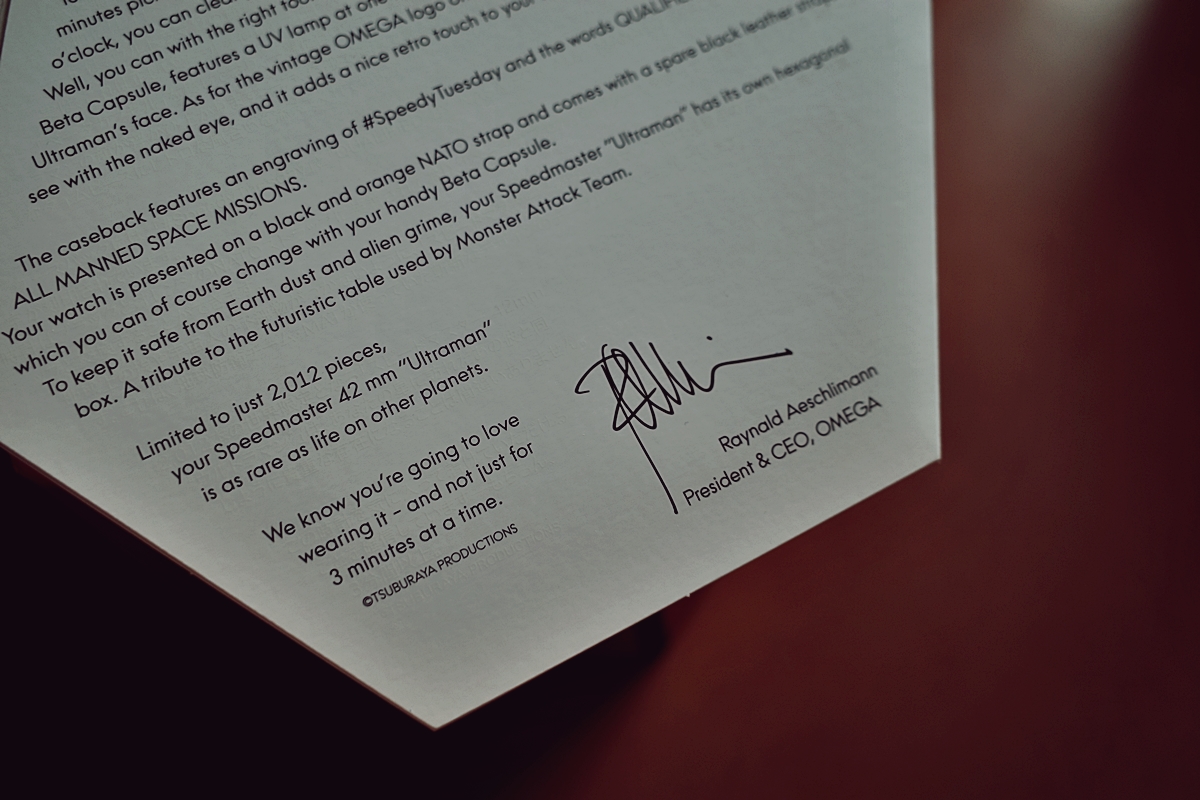 minutes
o'clock, you can
Well, you can with the right
Beta Capsule, features a UV lamp at one
Ultraman's face. As for the vintage OMEGA logo
see with the naked eye, and it adds a nice retro touch to your
The caseback features an engraving of #SpeedyTuesday and the words
ALL MANNED SPACE MISSIONS.
Your watch is presented on a black and orange NATO strap and comes with a spare black leather strap
which you can of course change with your handy Beta Capsule.
To keep it safe from Earth dust and alien grime, your Speedmaster "Ultraman" has its own hexagonal
box. A tribute to the futuristic table used by Monster Attack Team.
Limited to just 2,012 pieces,
your Speedmaster 42 mm "Ultraman"
is as rare as life on other planets.
We know you're going to love
wearing it – and not just for
3 minutes at a time.
©TSUBURAYA PRODUCTIONS
Raynald Aeschlimann
President & CEO, OMEGA